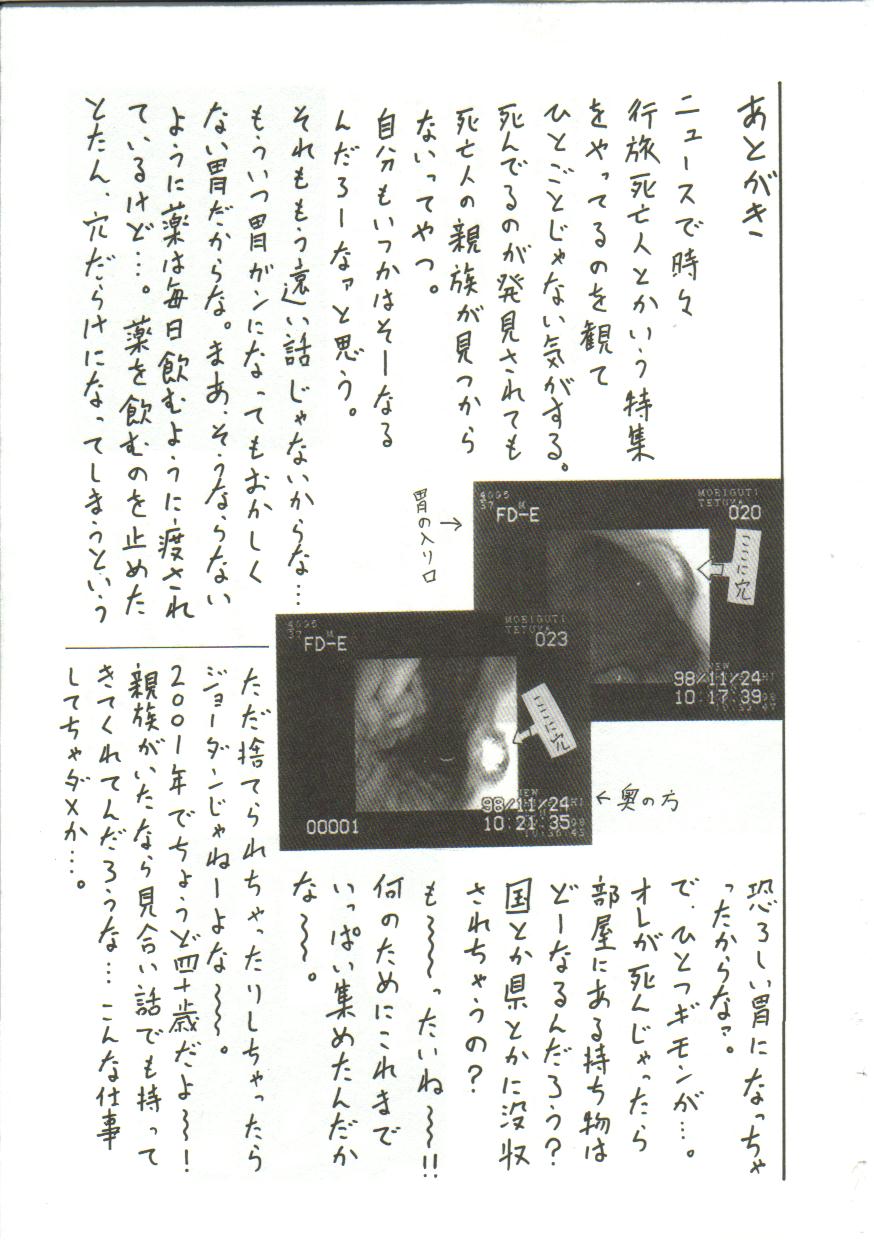 あとがき
ニュースで時々
行旅死亡人とかいう特集
をやってるのを観て
ひとごとじゃない気がする。
死んでるのが発見されても
死亡人の親族が見つから
ないってやつ。
自分もいつかはそーなる
んだろーなァと思う。
それももう遠い話じゃないからな…
もういつ胃ガンになってもおかしく
ない胃だからな。まあ、そうならない
ように薬は毎日飲むように渡され
ているけど…。薬を飲むのを止めた
とたん、穴だらけになってしまうという
胃の入り口→
4095
37 M
FD-E
MORIGUTI
TETUYA
020
ここに穴
98/11/24
10:17:39
4095
37 M
FD-E
MORIGUTI
TETUYA
023
ここに穴
98/11/24
10:21:35
00001
←奥の方
恐ろしい胃になっちゃ
ったからなァ。
で、ひとつギモンが…。
オレが死んじゃったら
部屋にある持ち物は
どーなるんだろう?
国とか県とかに没収
されちゃうの?
も〜〜ったいね〜〜!!
何のためにこれまで
いっぱい集めたんだか
な〜〜。
ただ捨てられちゃったりしちゃったら
ジョーダンじゃねーよな〜〜。
2001年でちょうど四十歳だよ〜!
親族がいたなら見合い話でも持って
きてくれてんだろうな…こんな仕事
してちゃダメか…。